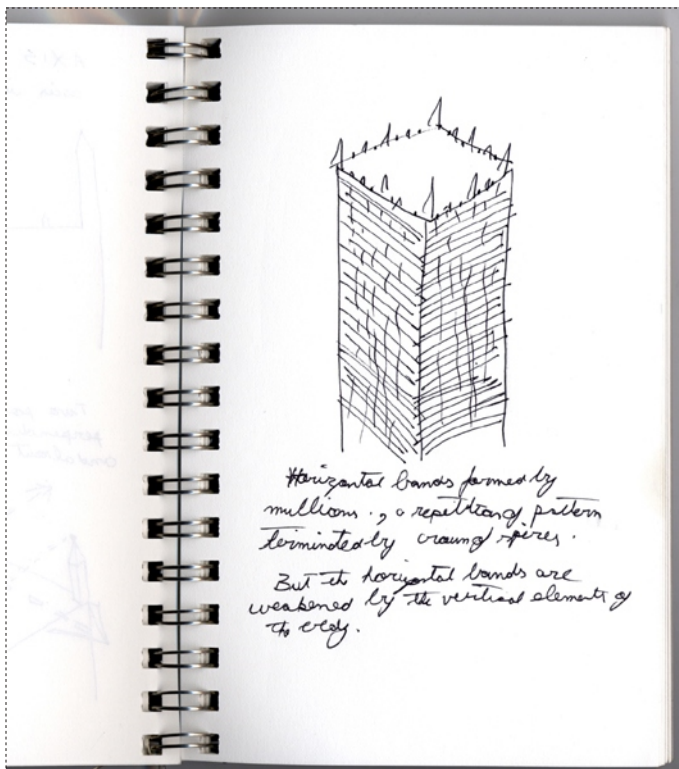 Horizontal bands formed by
mullions., a repetition of pattern
terminted by crown of spires.
But the horizontal bands are
weakened by the vertical elements of
the